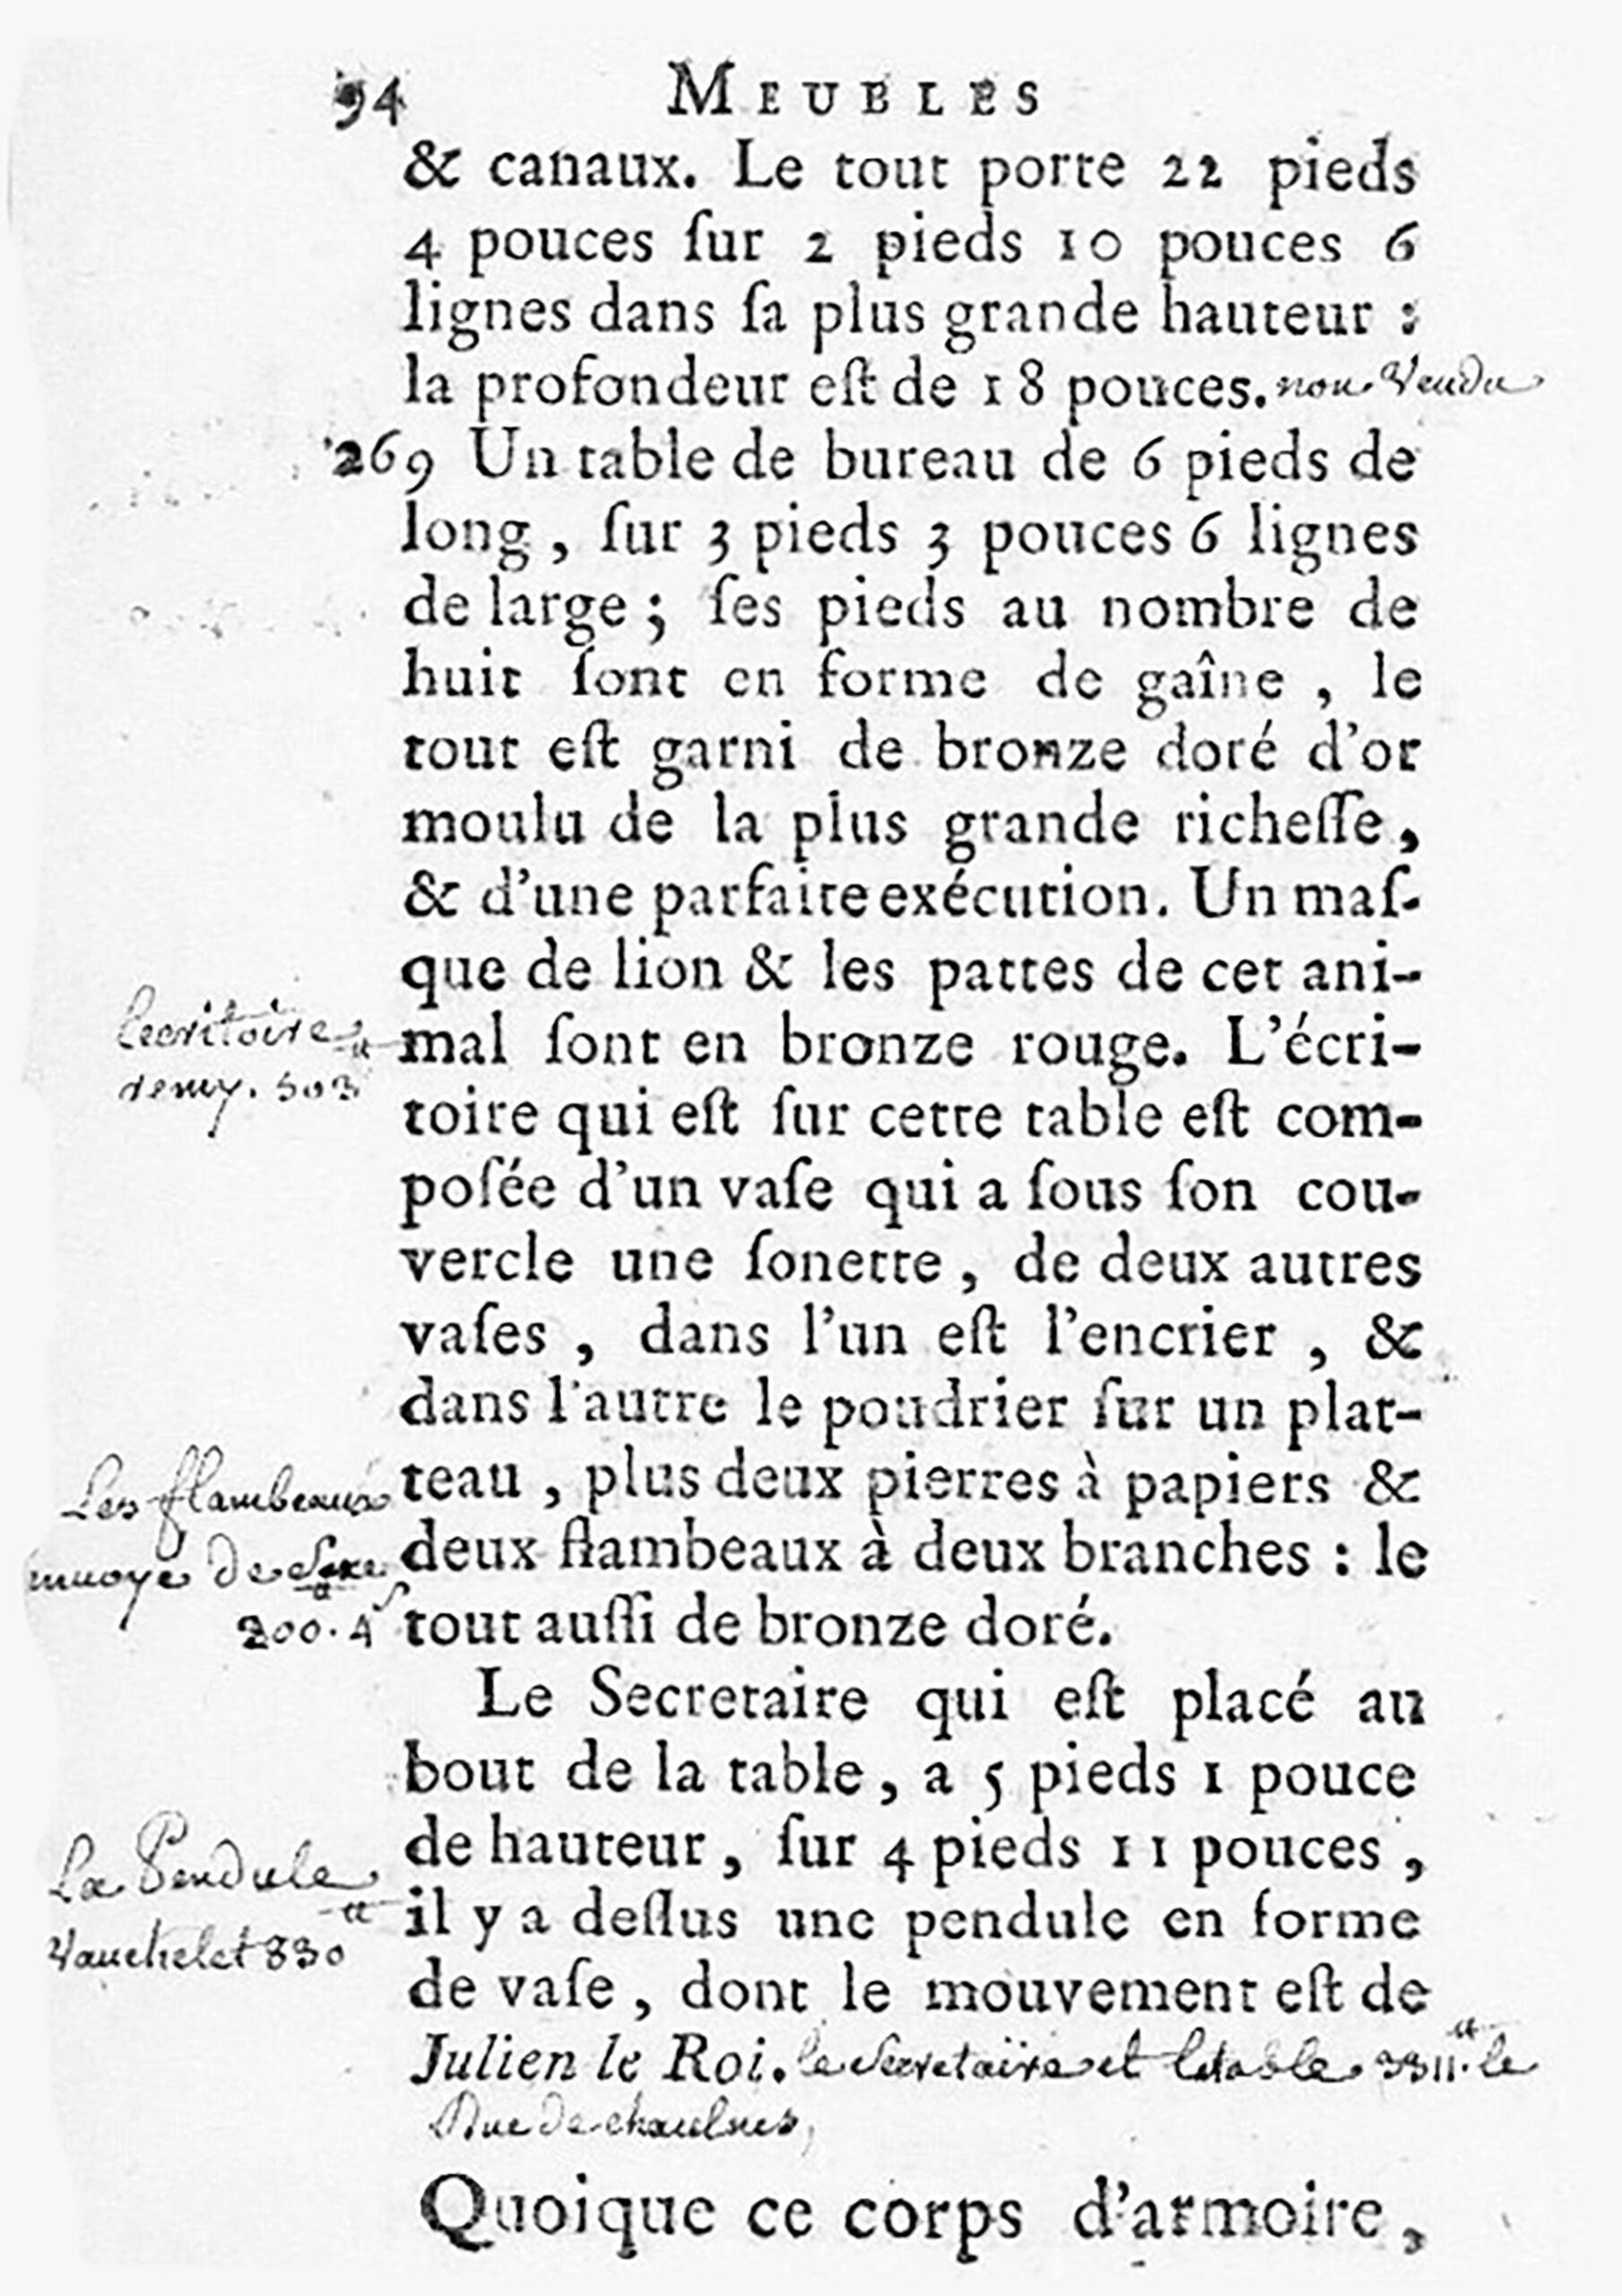 94 MEUBLES
& canaux. Le tout porte 22 pieds
4 pouces ſur 2 pieds 10 pouces 6
lignes dans ſa plus grande hauteur :
la profondeur eſt de 18 pouces. non Vendu
269 Un table de bureau de 6 pieds de
long , ſur 3 pieds 3 pouces 6 lignes
de large ; ſes pieds au nombre de
huit ſont en forme de gaîne , le
tout eſt garni de bronze doré d'or
moulu de la plus grande richeſſe,
& d'une parfaite exécution. Un maſ-
que de lion & les pattes de cet ani-
Lecritoire
mal ſont en bronze rouge. L'écri-
remy. 503
toire qui eſt ſur cette table eſt com-
poſée d'un vaſe qui a ſous ſon cou-
vercle une ſonette , de deux autres
vaſes , dans l'un eſt l'encrier , &
dans l'autre le poudrier ſur un plat-
Les flambeaux
teau , plus deux pierres à papiers &
envoye de Saxe
deux flambeaux à deux branches : le
200.4ˢ
tout auſſi de bronze doré.
Le Secretaire qui eſt placé au
bout de la table, a 5 pieds 1 pouce
de hauteur , ſur 4 pieds 11 pouces ,
La Pendule
il y a deſſus une pendule en forme
Vauchelet 830
de vaſe , dont le mouvement eſt de
Julien le Roi. le Secretaire et la table 3311 le
Duc de chaulnes,
Quoique ce corps d'armoire,